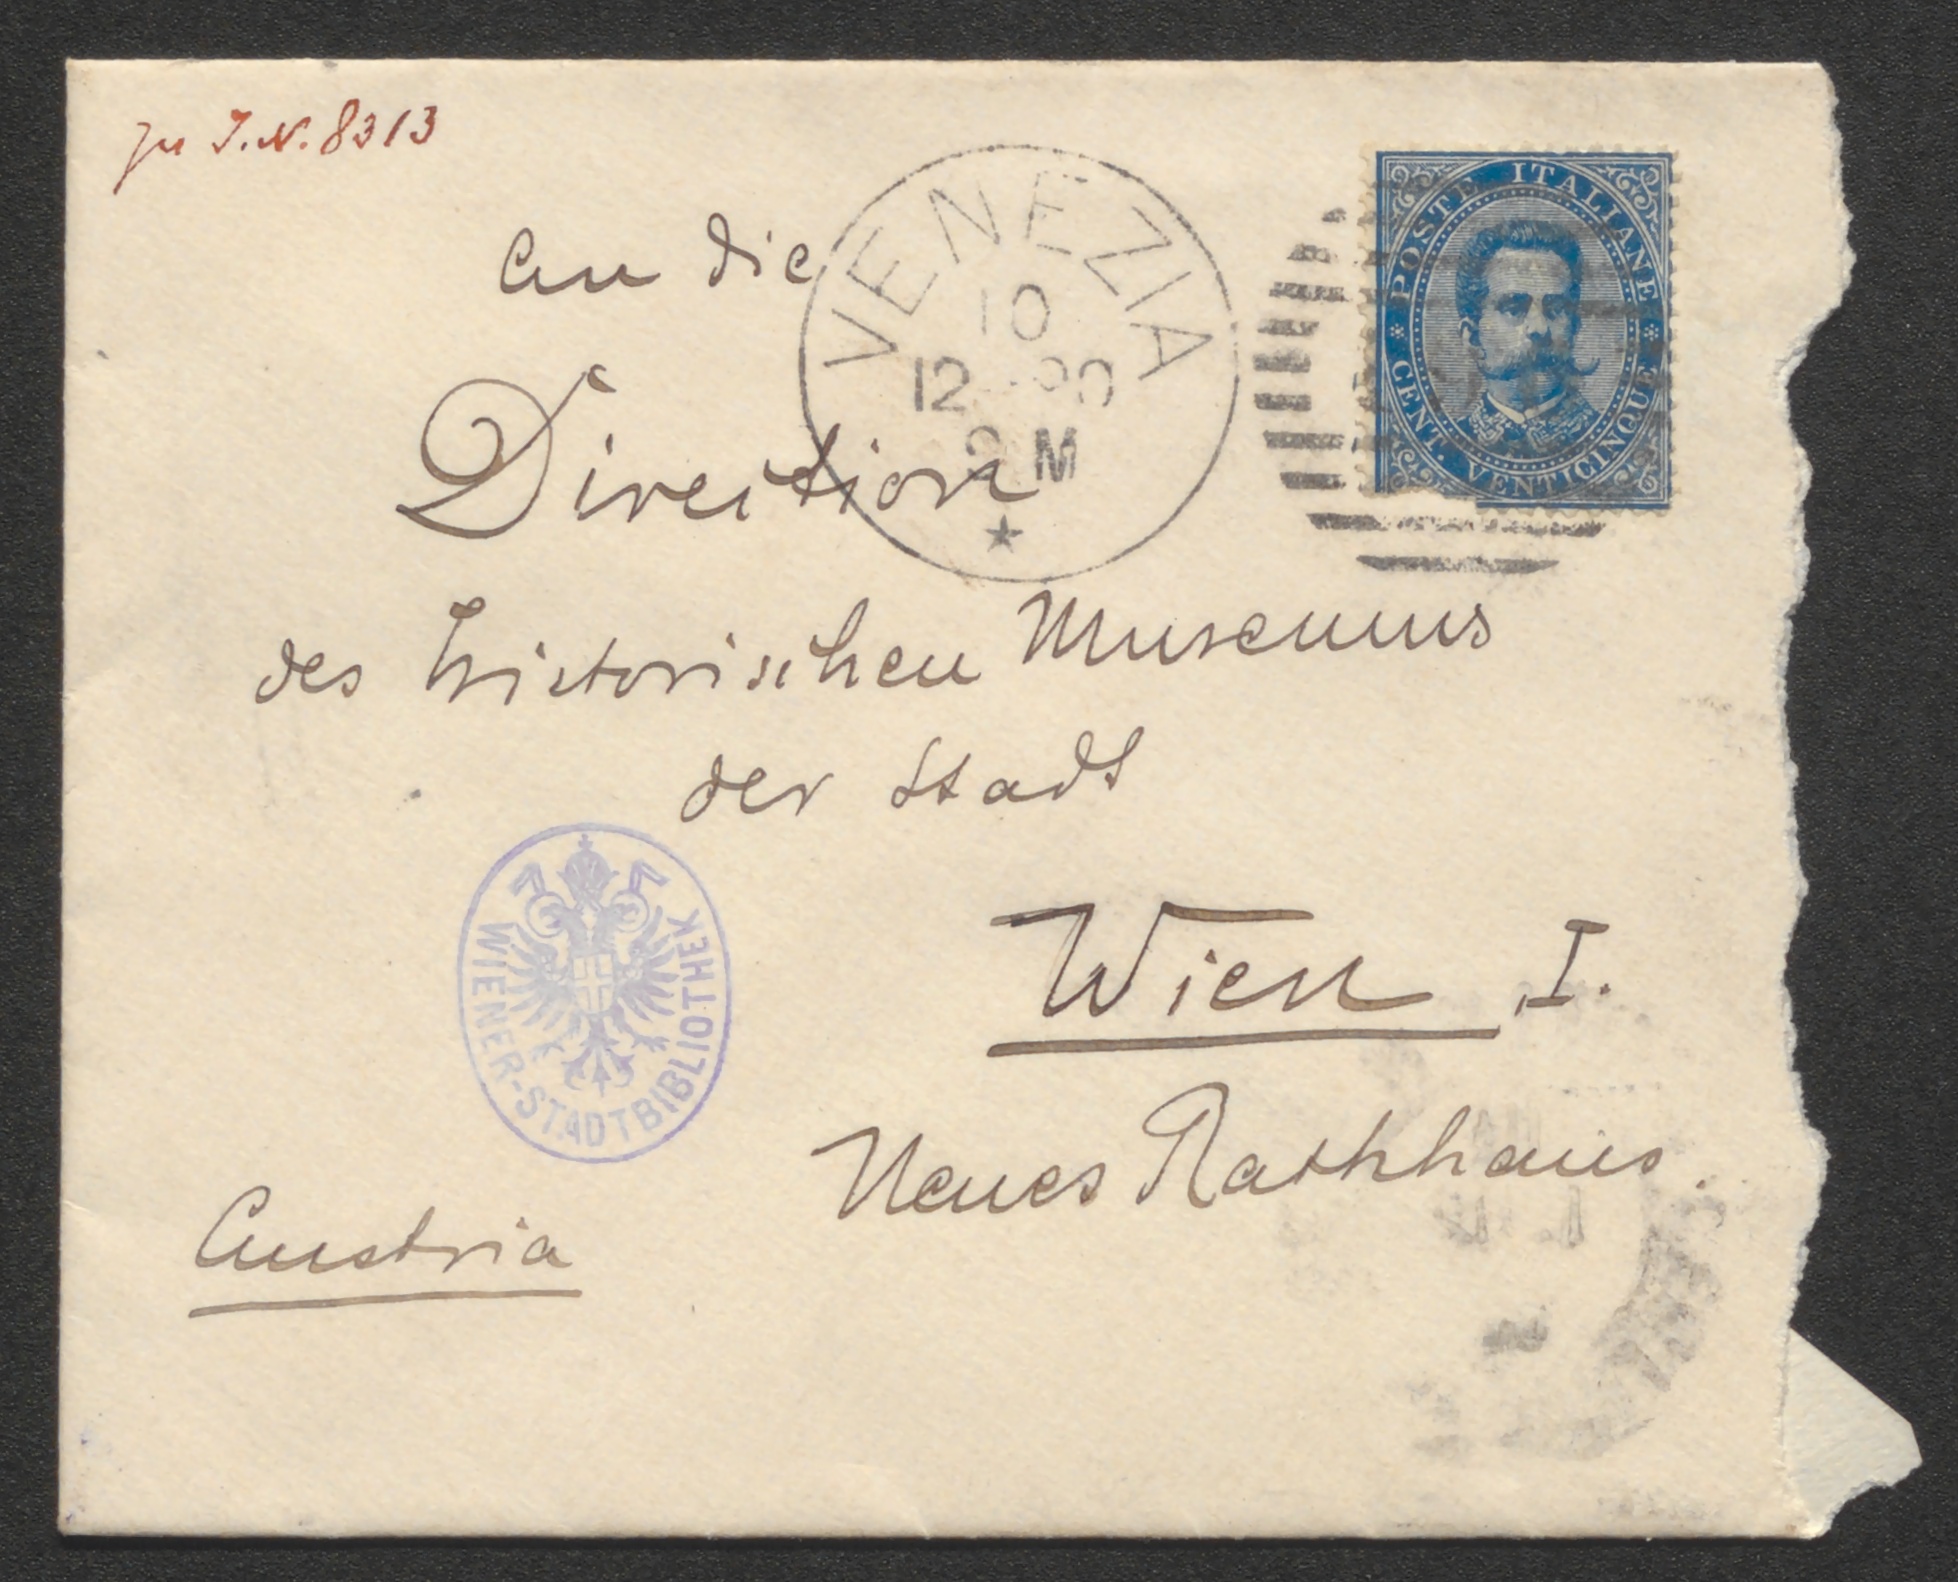 zu I.N. 8313
An die
Direction
des historischen Museums
der Stadt
Wien, I.
Neues Rathhaus.
Austria
VENEZIA
10
12
M
POSTE ITALIANE
CENT. VENTICINQUE
WIENER-STADTBIBLIOTHEK